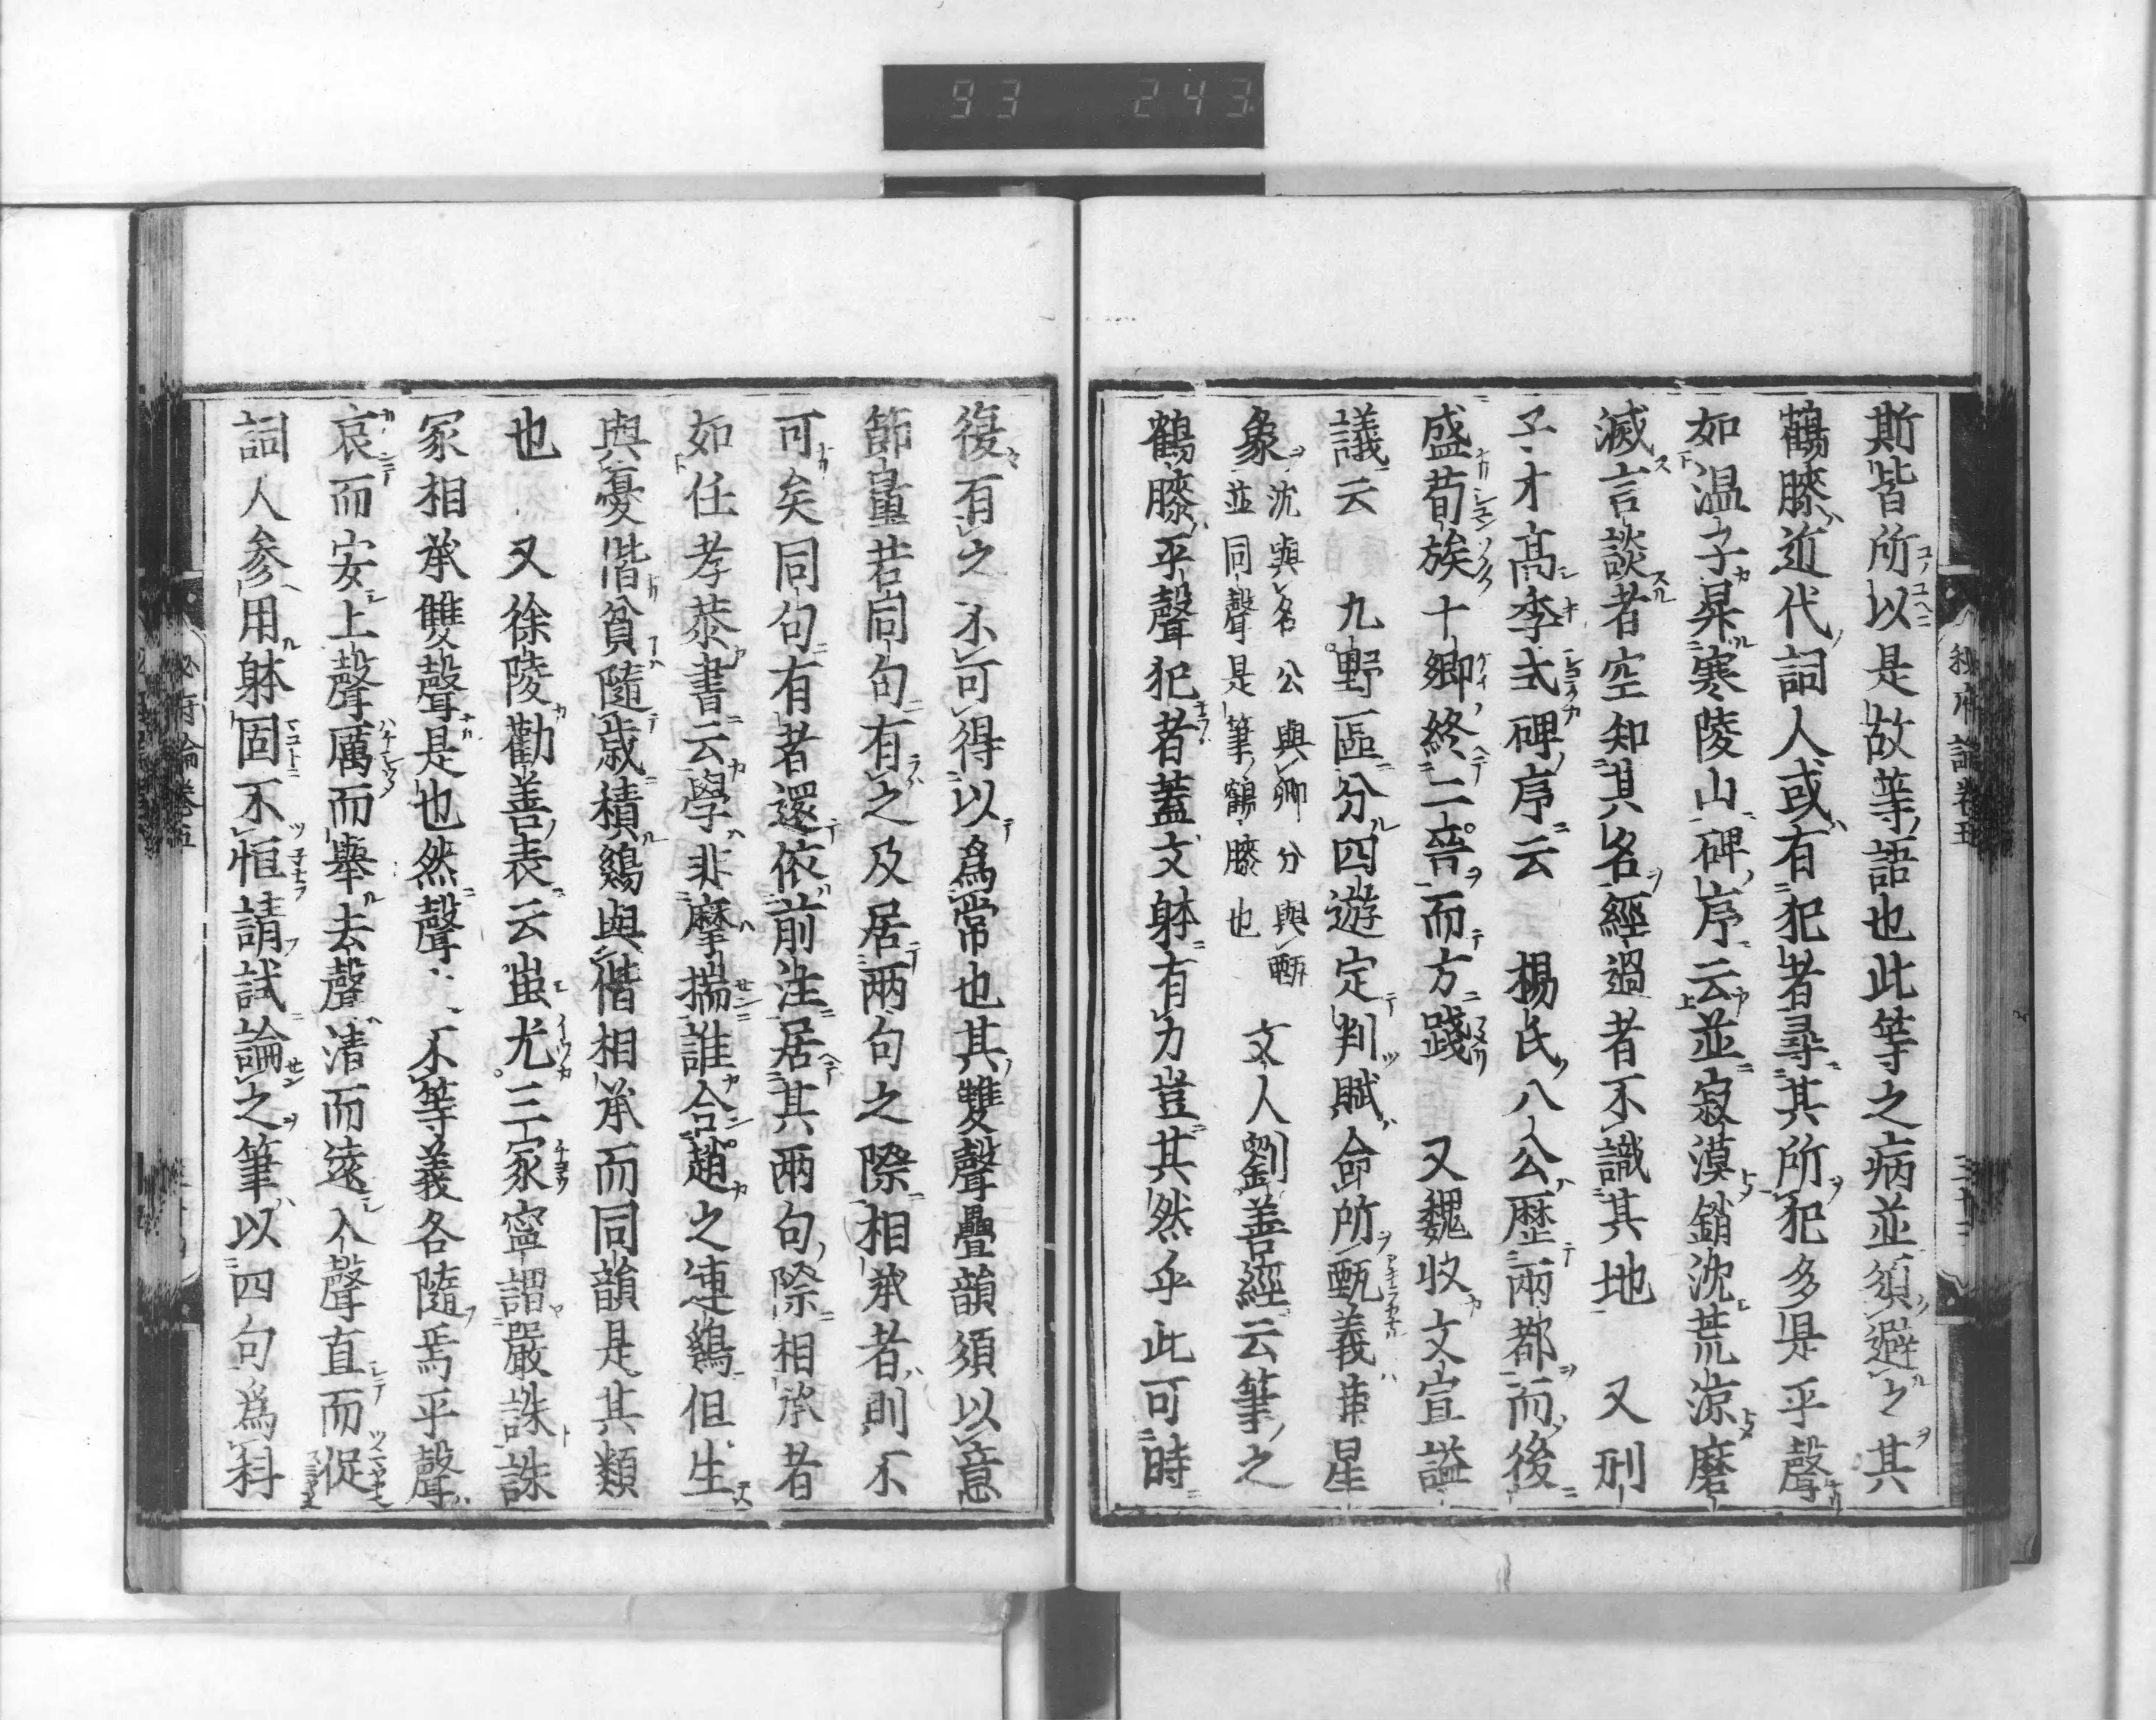 93 243
秘府論卷五
斯皆所以是故等語也此等之病並須避之其
鶴膝近代詞人或有犯者尋其所犯多是平聲
如温子昇寒陵山碑序云並寂漠銷沈荒涼磨
滅言談者空知其名經過者不識其地 又刑
子才高季式碑序云 楊氏八公歷兩都而後
盛荀族十卿終二晉而方踐 又魏收文宣謚
議云 九野區分四遊定判賦命所甄義兼星
象沈與名公與卿分與甄
並同聲是筆鶴膝也 文人劉善經云筆之
鶴膝平聲犯者蓋文躰有力豈其然乎此可時
復有之不可得以爲常也其雙聲疊韻須以意
節量若同句有之及居兩句之際相承者則不
可矣同句有者還依前注居其兩句際相承者
如任孝恭書云學非摩揣誰合趙之連鷄但生
與憂偕貧隨歲積鷄與偕相承而同韻是其類
也 又徐陵勸善表云蚩尤三冢寧謂嚴誅誅
冢相承雙聲是也然聲〻不等義各隨焉平聲
哀而安上聲厲而舉去聲清而遠入聲直而促
詞人參用躰固不恒請試論之筆以四句爲科
秘府論卷五